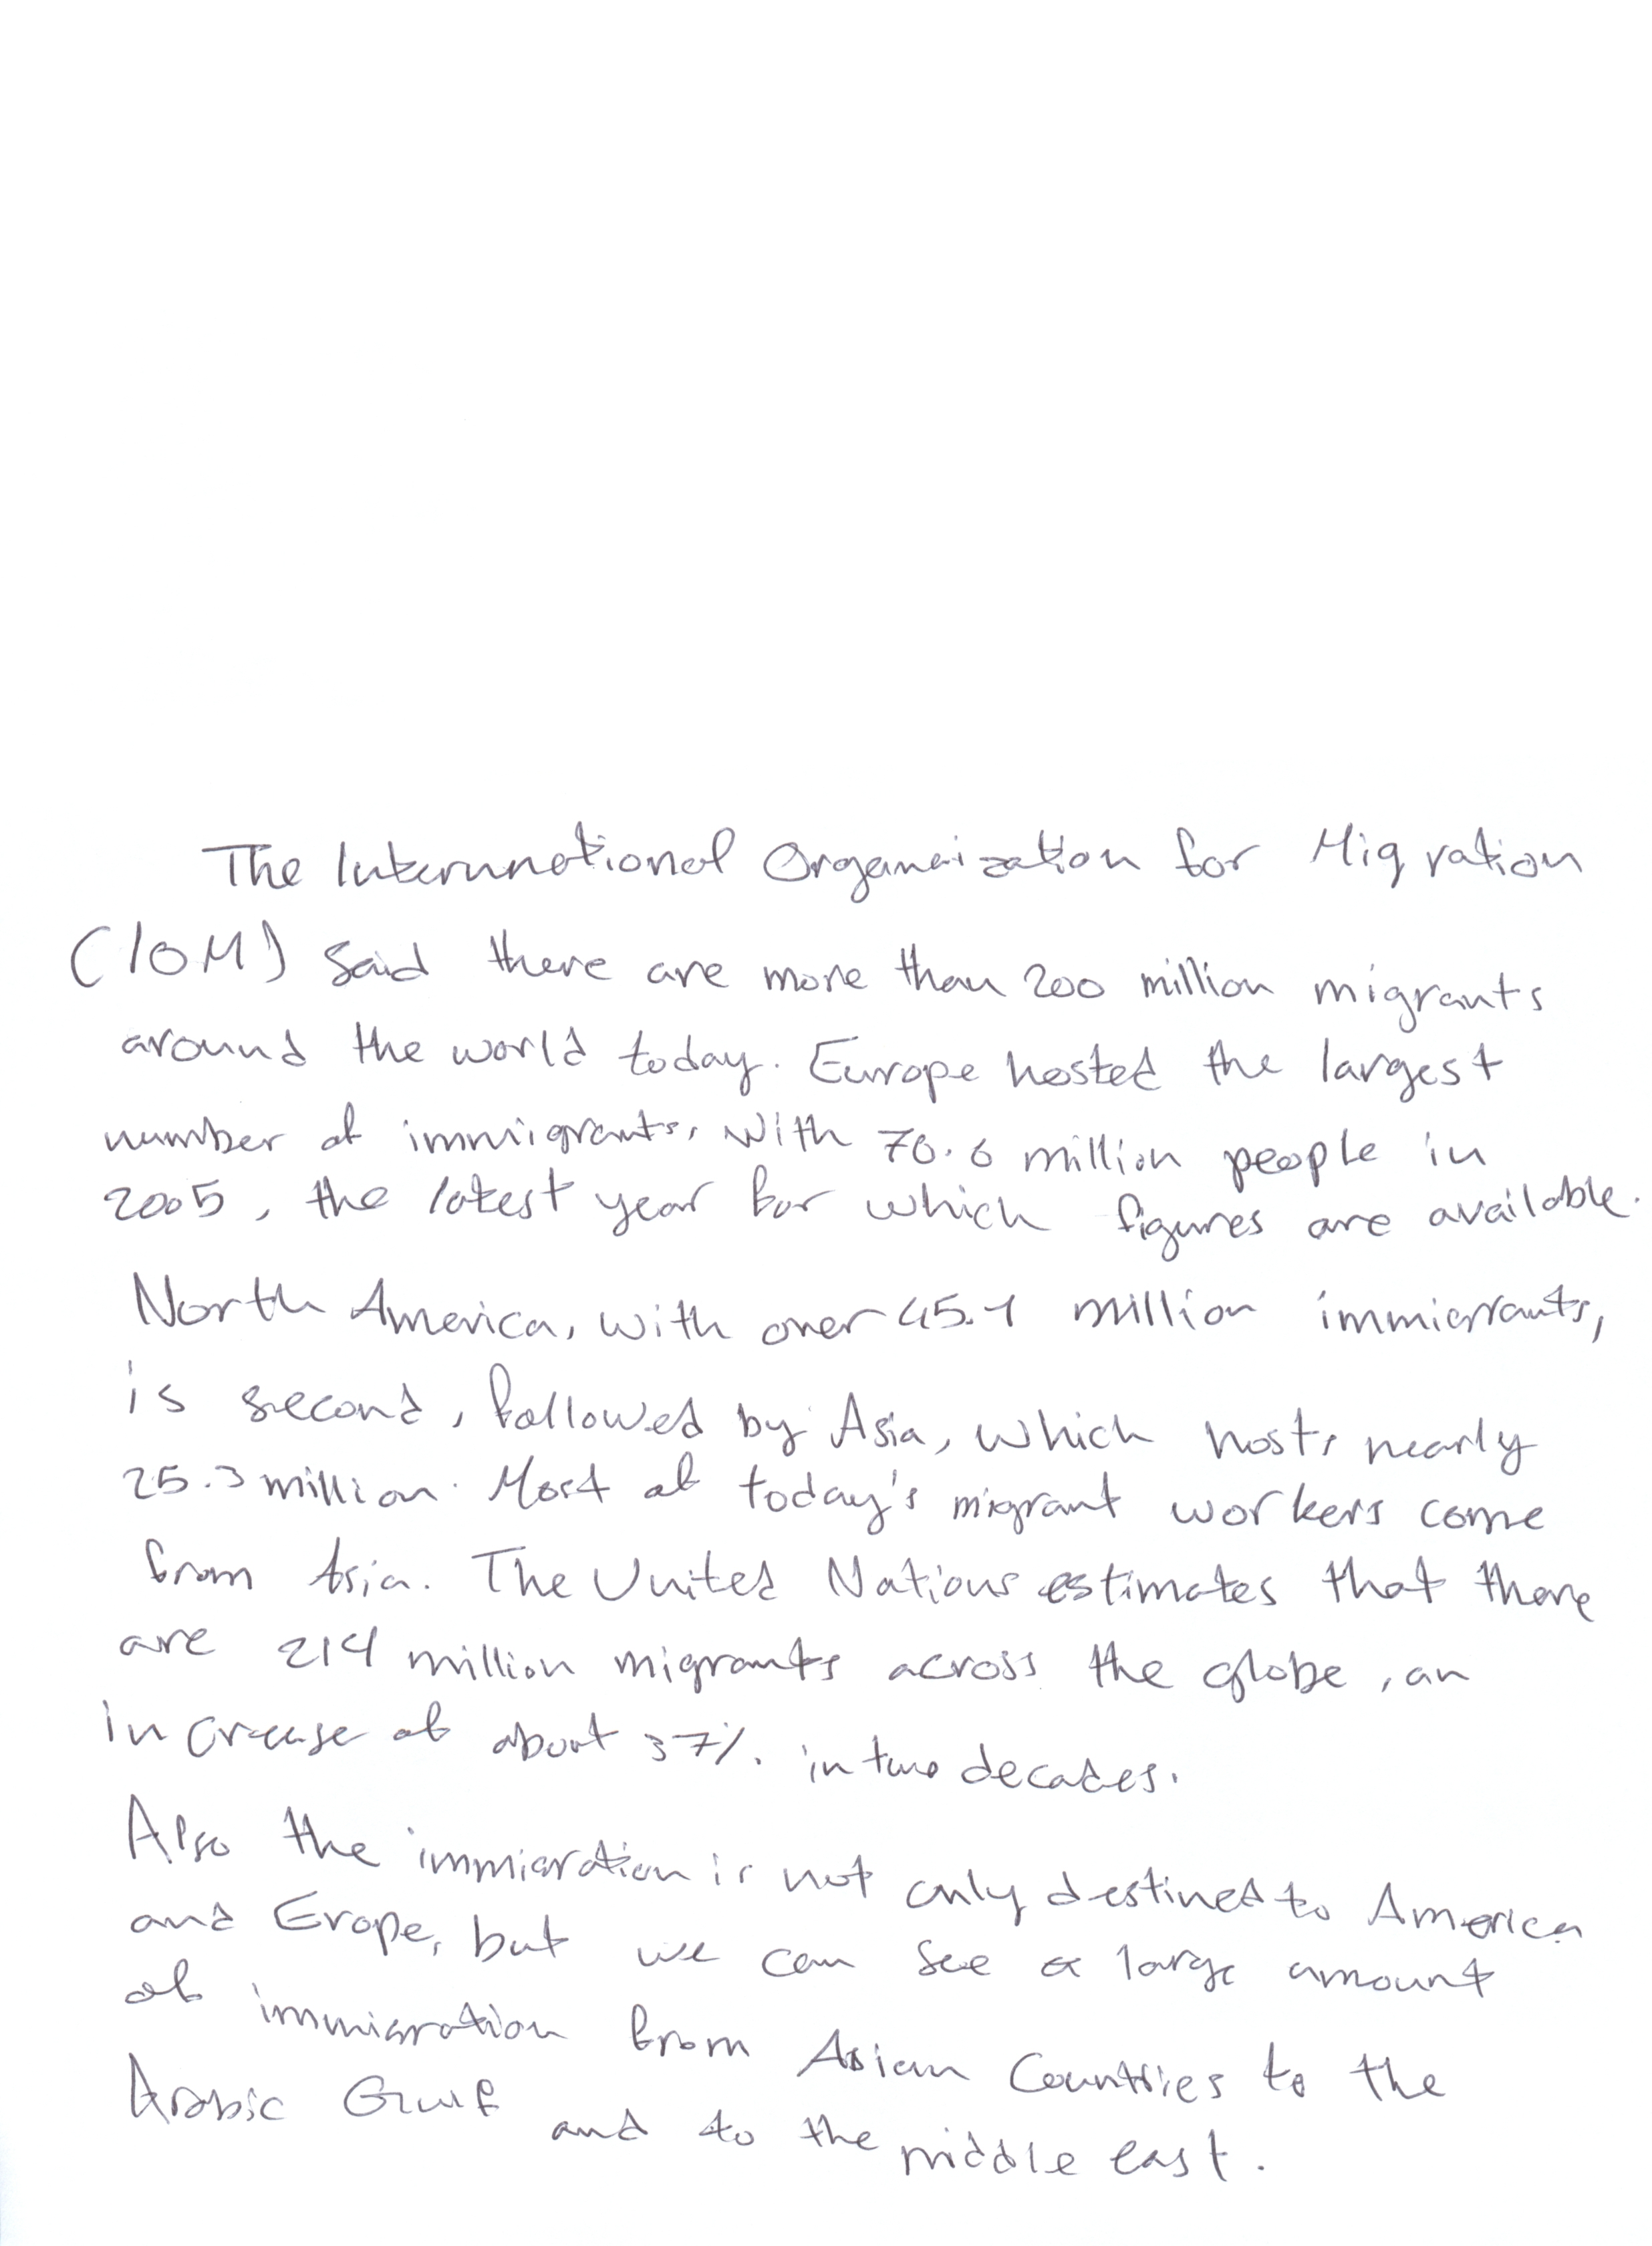 The International Organization for Migration
(IOM) said there are more than 200 million migrants
around the world today. Europe hosted the largest
number of immigrants, with 70.6 million people in
2005, the latest year for which figures are available.
North America, with over 45.1 million immigrants,
is second, followed by Asia, which hosts nearly
25.3 million. Most of today's migrant workers come
from Asia. The United Nations estimates that there
are 214 million migrants across the globe, an
increase of about 37% in two decades.
Also the immigration is not only destined to America
and Erope, but we can see a large amount
of immigration from Asian Countries to the
Arabic Gulf and to the middle east.